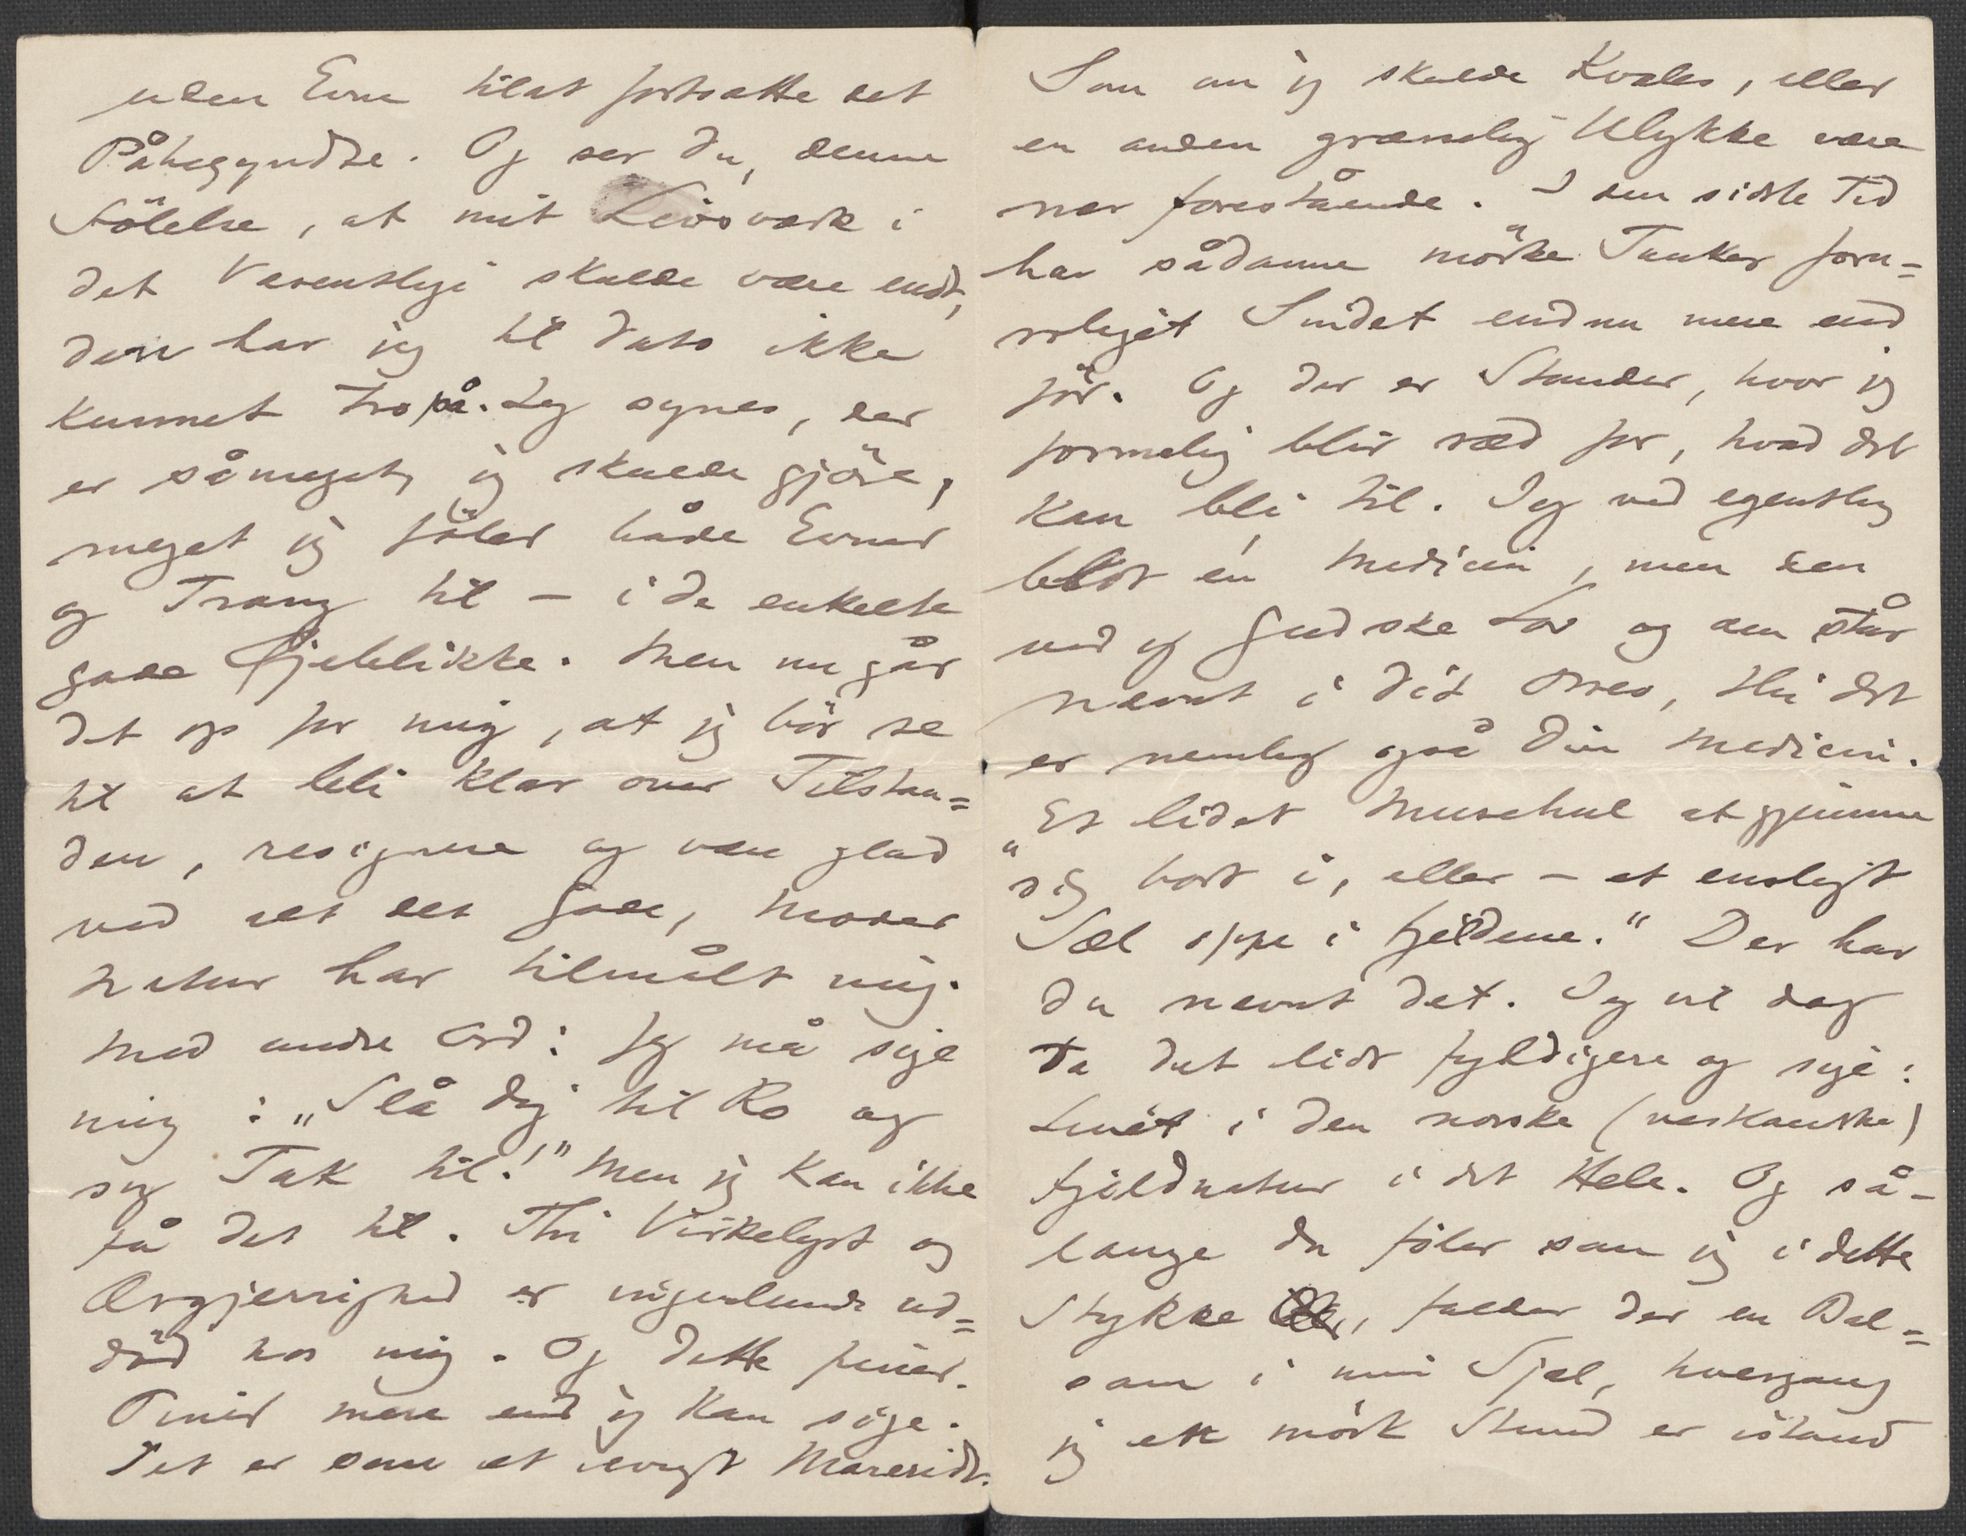 uden Evne tilat fortsætte det
Påbegyndte. Og ser du, denne
Fölelse, at mit Livsværk i
det Væsentlige skulde være endt,
den har jeg til Dato ikke
kunnet tro på. Jeg synes, der
er såmeget, jeg skulde gjöre,
meget jeg föler både Evner
og Trang til – i de enkelte
gode Øjeblikke. Men nu går
det op for mig, at jeg bör se
til at bli klar over Tilstan=
den, resignere og være glad
ved alt det Gode, Moder
Natur har tilmålt mig.
Med andre Ord: Jeg må sige
mig: „Slå dig til Ro og
sig Tak til!" Men jeg kan ikke
få det til. Thi Virkelyst og
Ærgjerrighed er ingenlunde ud=
död hos mig. Og dette piner.
Piner mere end jeg kan sige.
Det er som et evigt Mareridt.
Som om jeg skulde Kvæles, eller
en anden græmelig Ulykke være
nær forestående. I den sidste Tid
har sådanne mörke Tanker foru=
roliget Sindet endnu mere end
för. Og der er Stunder, hvor jeg
formelig blir ræd for, hvad det
kan bli til. Jeg ved egentlig
blot én Medicin, men den
ved jeg Gud ske Lov og den står
nævnt i dit Brev, thi det
er nemlig også Din Medicin.
„Et lidet Musehul at gjemme
„sig bort i, eller – et ensligt
Sæl oppe i fjeldene." Der har
du nævnt det. Jeg vil dog
ta det lidt fyldigere og sige:
Livet i den norske (vestlandske)
fjeldnatur i det Hele. Og så-
længe du föler som jeg i dette
Stykke, falder der en Bal=
sam i min Sjæl, hvergang
jeg en mörk Stund er istand